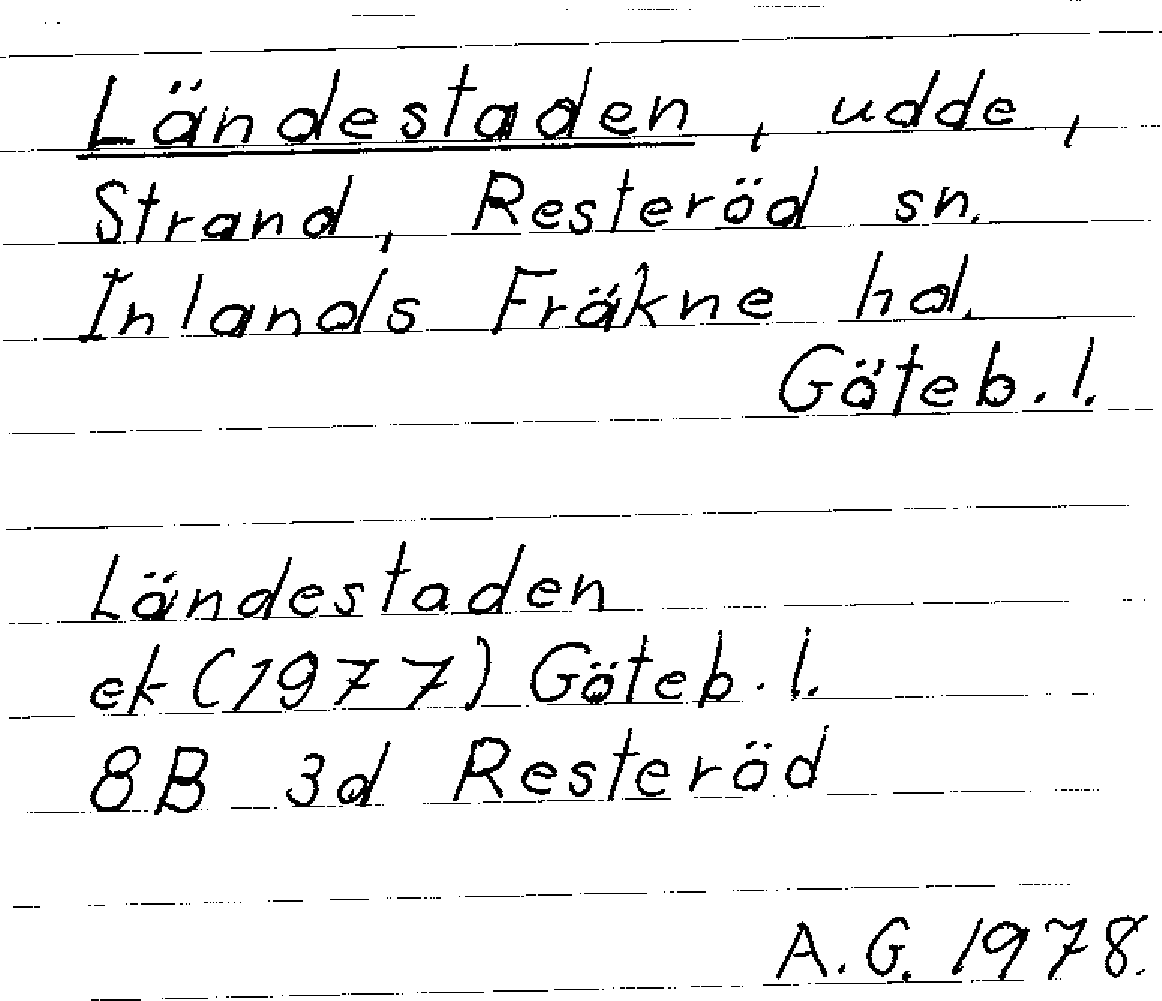 Ländestaden, udde,
Strand, Resteröd sn.
Inlands Fräkne hd.
Göteb. l.
Ländestaden
ek (1977) Göteb. l.
8B 3d Resteröd
A.G. 1978.